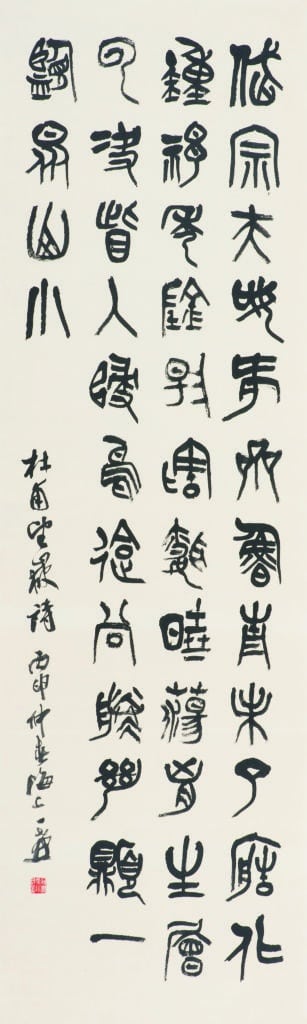 岱宗夫如何齊魯青未了造化
鍾神秀陰陽割昏曉蕩胸生層
云決眥入歸鳥會當凌絕頂一
覽眾山小
杜甫望嶽詩 丙申仲春海上一